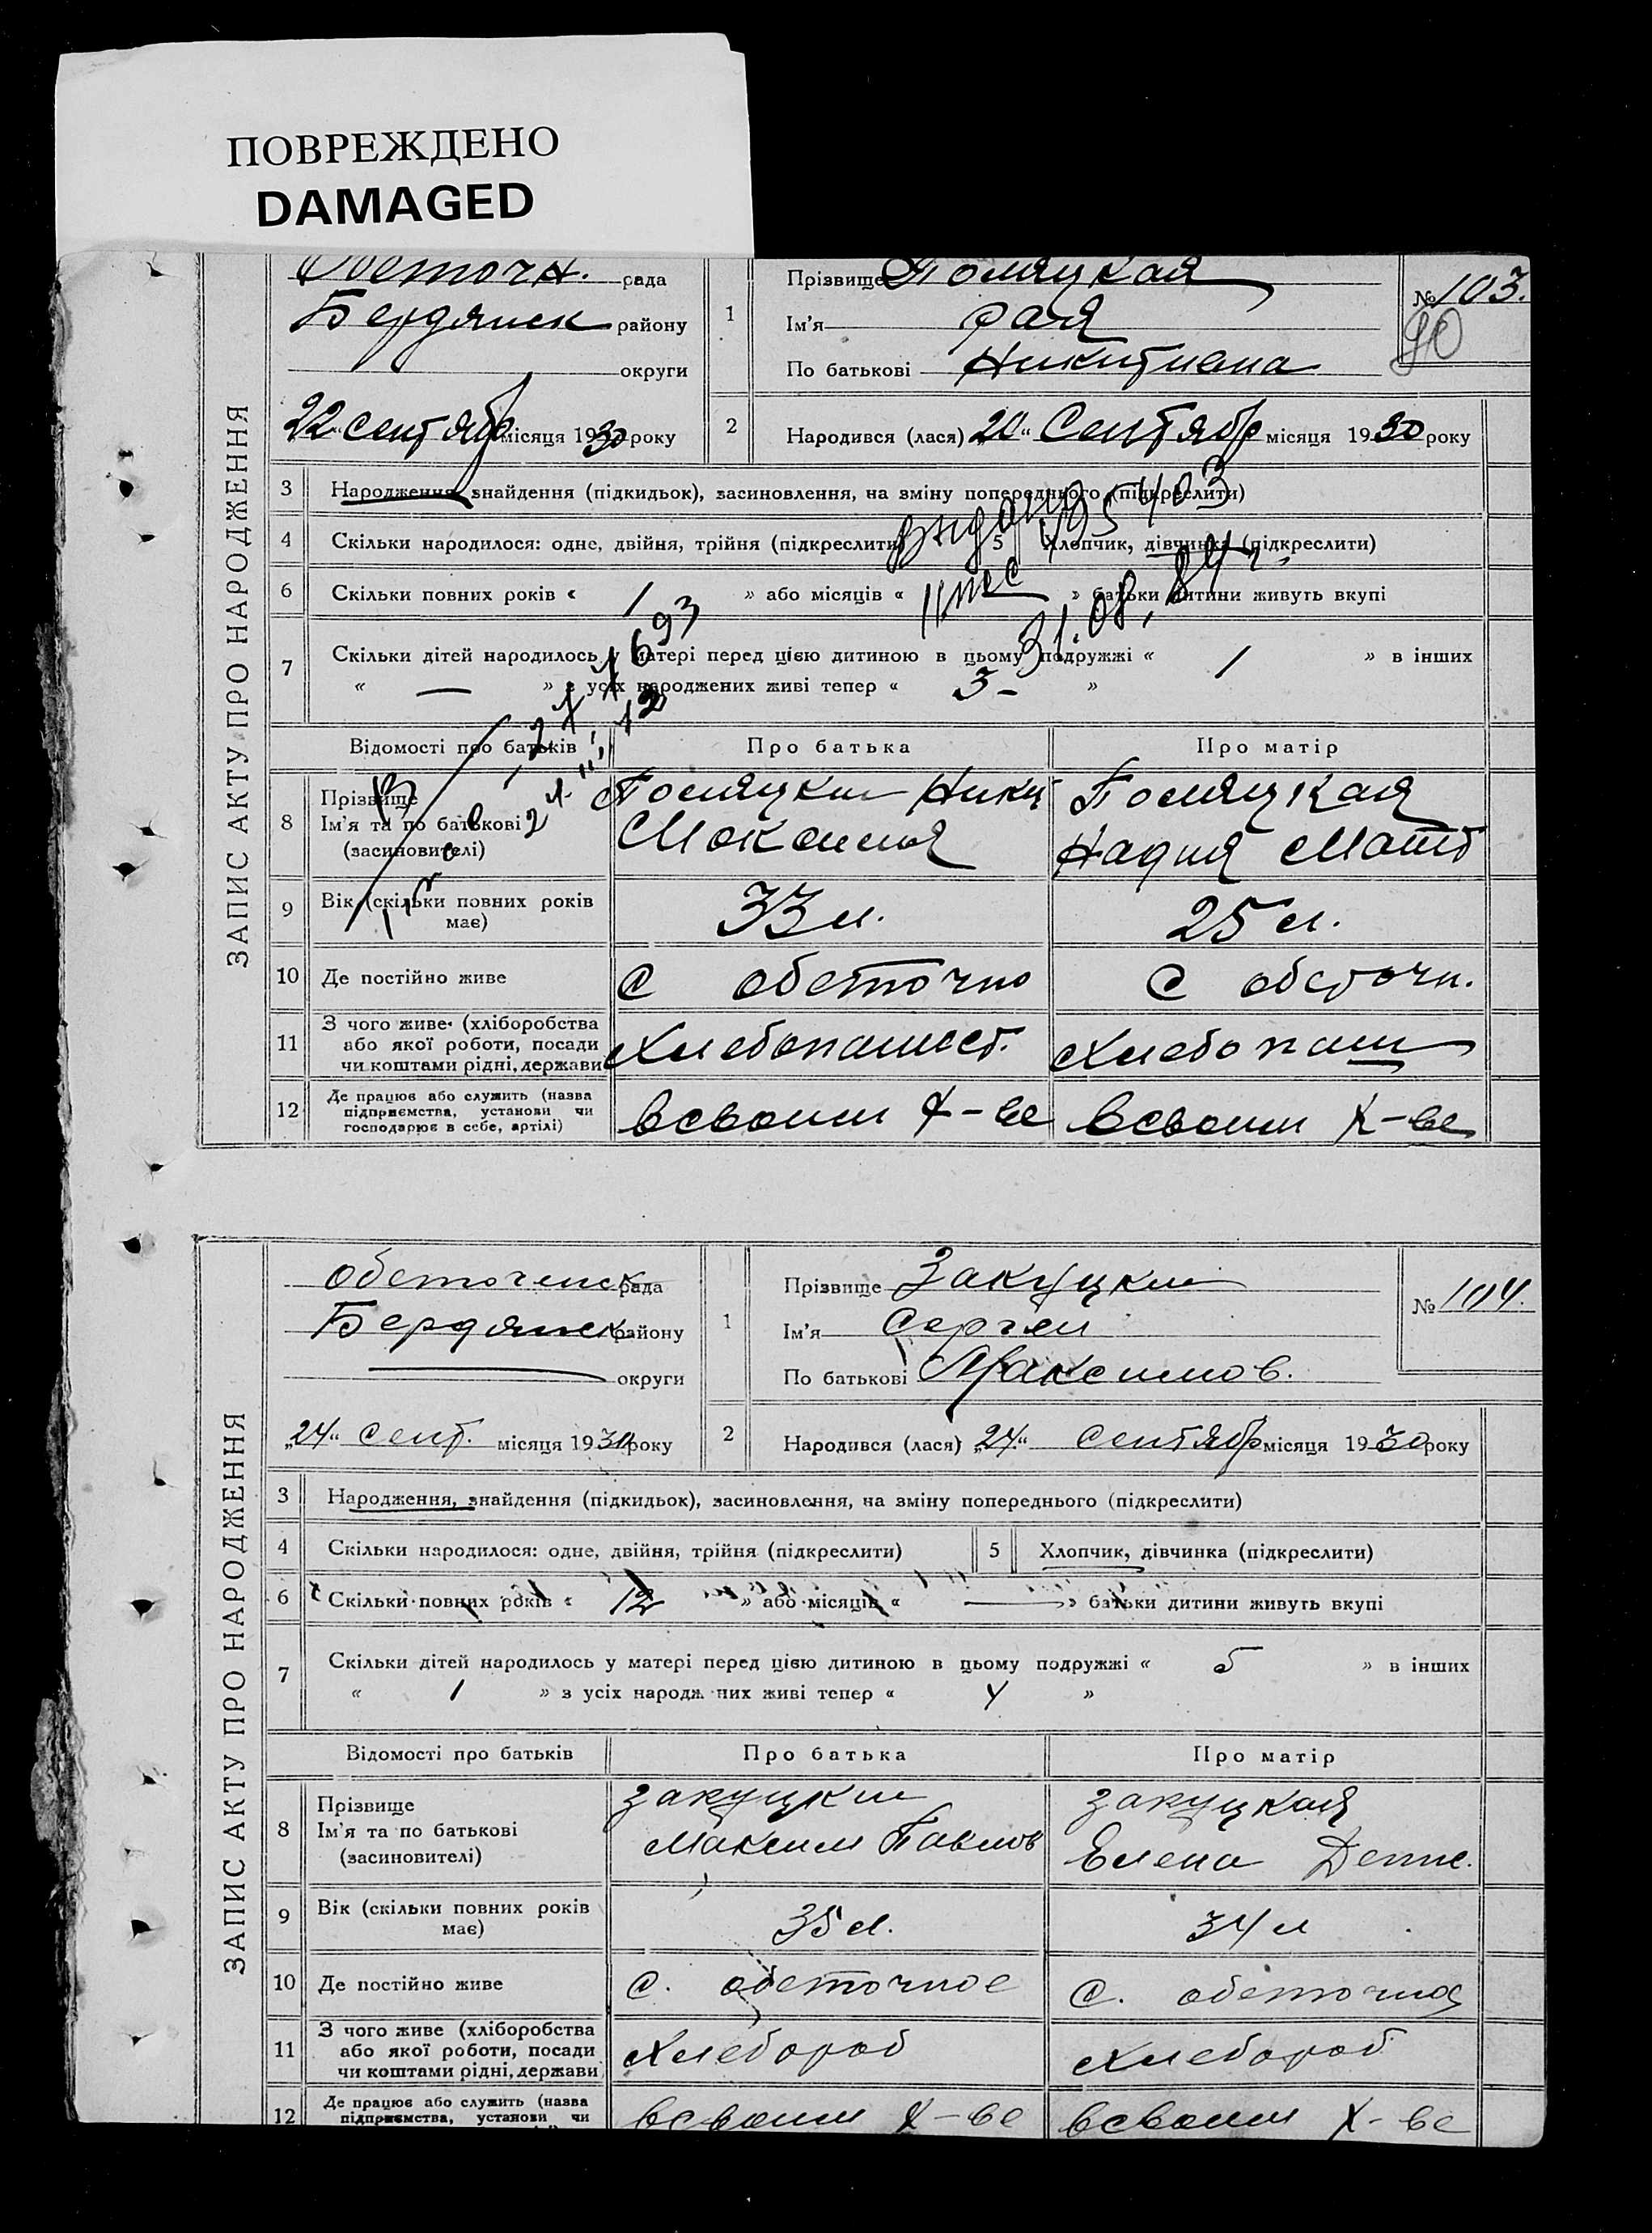 ПОВРЕЖДЕНО
DAMAGED
ЗАПИС АКТУ ПРО НАРОДЖЕННЯ
Обеточн. рада
Бердянск району
округи
22 сентябр місяця 1930 року
1 Прізвище
Ім'я Рая
По батькові Никитична
№ 103.
2 Народився (лася) „20“ Сентябр місяця 1930 року
3 Народження, знайдення (підкидьок), засиновлення, на зміну попереднього (підкреслити)
4 Скільки народилося: одне, двійня, трійня (підкреслити)
5 Хлопчик, дівчинка (підкреслити)
6 Скільки повних років « 1 » або місяців « 11 мес » батьки дитини живуть вкупі
7 Скільки дітей народилось у матері перед цією дитиною в цьому подружжі « 1 » в інших
« — » з усіх народжених живі тепер « 3 - »
31.08.84 г.
Відомості про батьків Про батька Про матір
8 Прізвище
Ім'я та по батькові
(засиновителі)
Надия
9 Вік (скільки повних років
має)
33 л. 25 л.
10 Де постійно живе С обеточно С обеточн.
11 З чого живе (хліборобства
або якої роботи, посади
чи коштами рідні, держави
Хлебопашест. Хлебопаш
12 Де працює або служить (назва
підприємства, установи чи
господарює в себе, артілі)
в своим х-ве в своим х-ве
ЗАПИС АКТУ ПРО НАРОДЖЕННЯ
обеточенск рада
Бердянск району
округи
„24“ сент. місяця 1930 року
1 Прізвище Закуцкий
Ім'я Сергей
По батькові Максимов.
№ 104.
2 Народився (лася) „24“ сентябр місяця 1930 року
3 Народження, знайдення (підкидьок), засиновлення, на зміну попереднього (підкреслити)
4 Скільки народилося: одне, двійня, трійня (підкреслити)
5 Хлопчик, дівчинка (підкреслити)
6 Скільки повних років « 12 » або місяців « — » батьки дитини живуть вкупі
7 Скільки дітей народилось у матері перед цією дитиною в цьому подружжі « 5 » в інших
« 1 » з усіх народж них живі тепер « 4 »
Відомості про батьків Про батька Про матір
8 Прізвище
Ім'я та по батькові
(засиновителі)
Закуцкий
Максим Павлов
Закуцкая
Елена Дение.
9 Вік (скільки повних років
має)
35 л. 34 л
10 Де постійно живе с. обеточное с. обеточное
11 З чого живе (хліборобства
або якої роботи, посади
чи коштами рідні, держави
Хлебороб Хлебороб
12 Де працює або служить (назва
підприємства, установи чи
в своим х-ве в своим х-ве